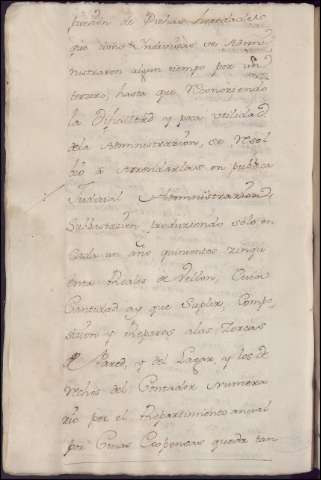 pueden de Dichas heredades
que como Yndivisas se Admi
nistraron algun tiempo por un
tercero, hasta que Reconociendo
la Dificultad y poca utilidad
de la Administracion, se Resol
vio a Arrendarlas en publica
Judicial Administracion,
Subastacion produciendo solo en
Cada un año quinientos zinqu
enta Reales de Vellon, Cuia
Cantidad ay que Suplir, Compo
sicion y Reparos a las Zercas
Pared, y del Lagar y los de
rechos del Contador Numera
rio por el Repartimiento anual
por Cuias Expensas queda tan